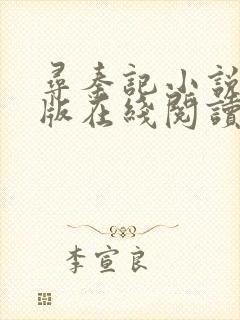 尋秦記小說
版在綫閱讀
李宣良